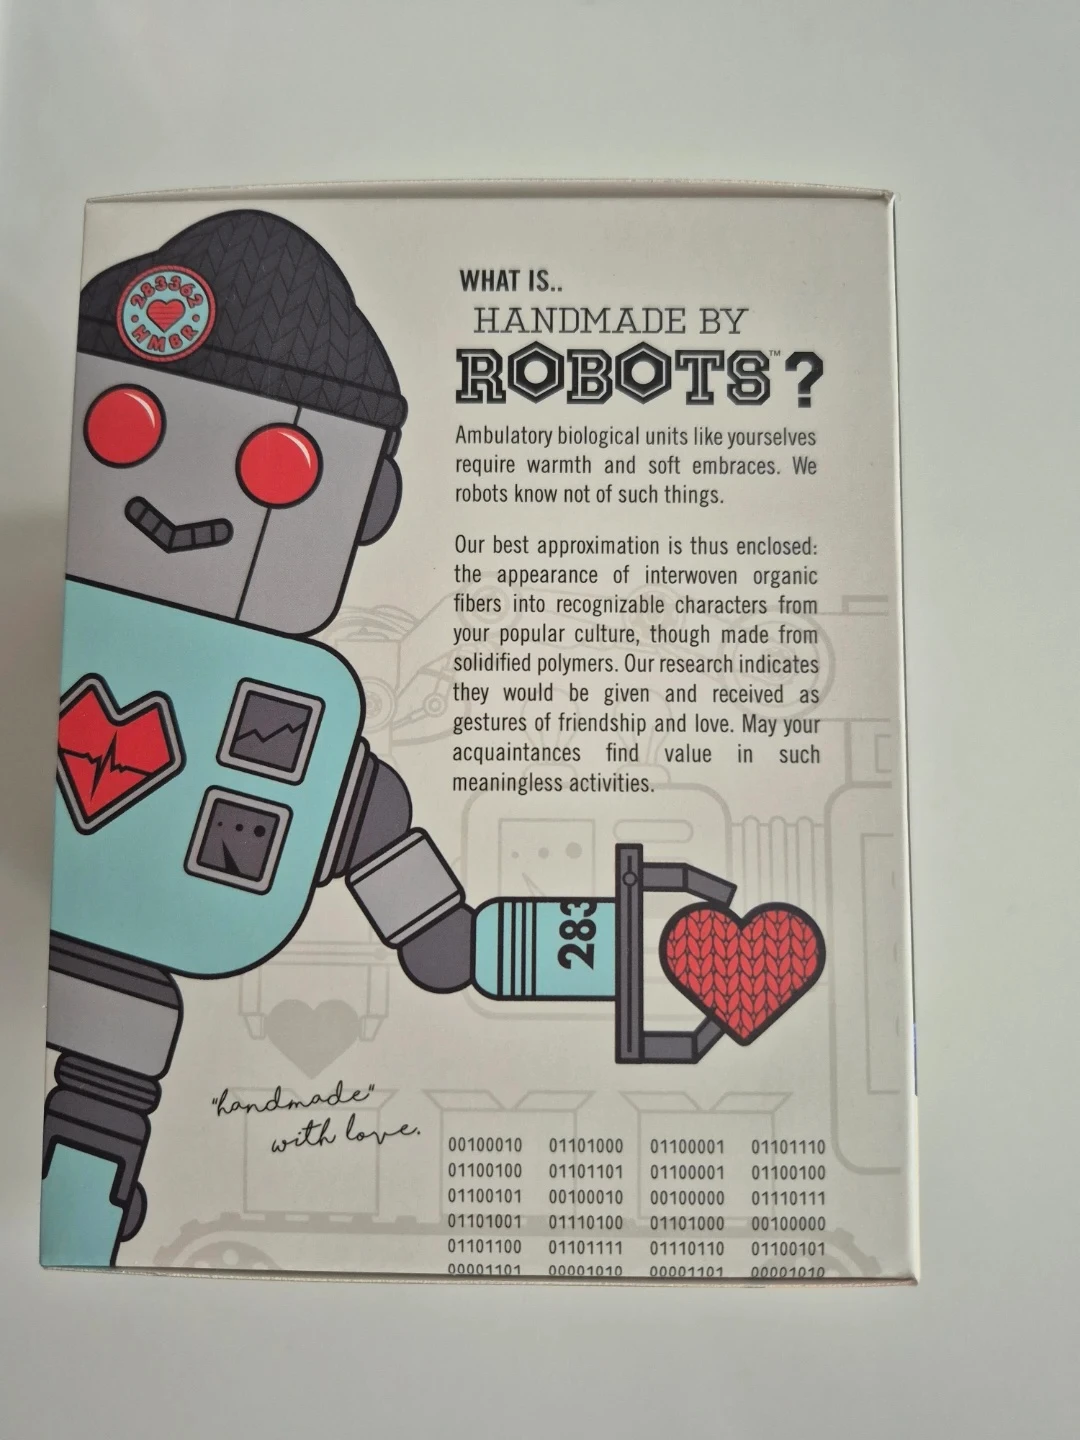 283362
HMBR
WHAT IS..
HANDMADE BY
ROBOTS™?
Ambulatory biological units like yourselves
require warmth and soft embraces. We
robots know not of such things.
Our best approximation is thus enclosed:
the appearance of interwoven organic
fibers into recognizable characters from
your popular culture, though made from
solidified polymers. Our research indicates
they would be given and received as
gestures of friendship and love. May your
acquaintances find value in such
meaningless activities.
283
"handmade"
with love.
00100010 01101000 01100001 01101110
01100100 01101101 01100001 01100100
01100101 00100010 00100000 01110111
01101001 01110100 01101000 00100000
01101100 01101111 01110110 01100101
00001101 00001010 00001101 00001010